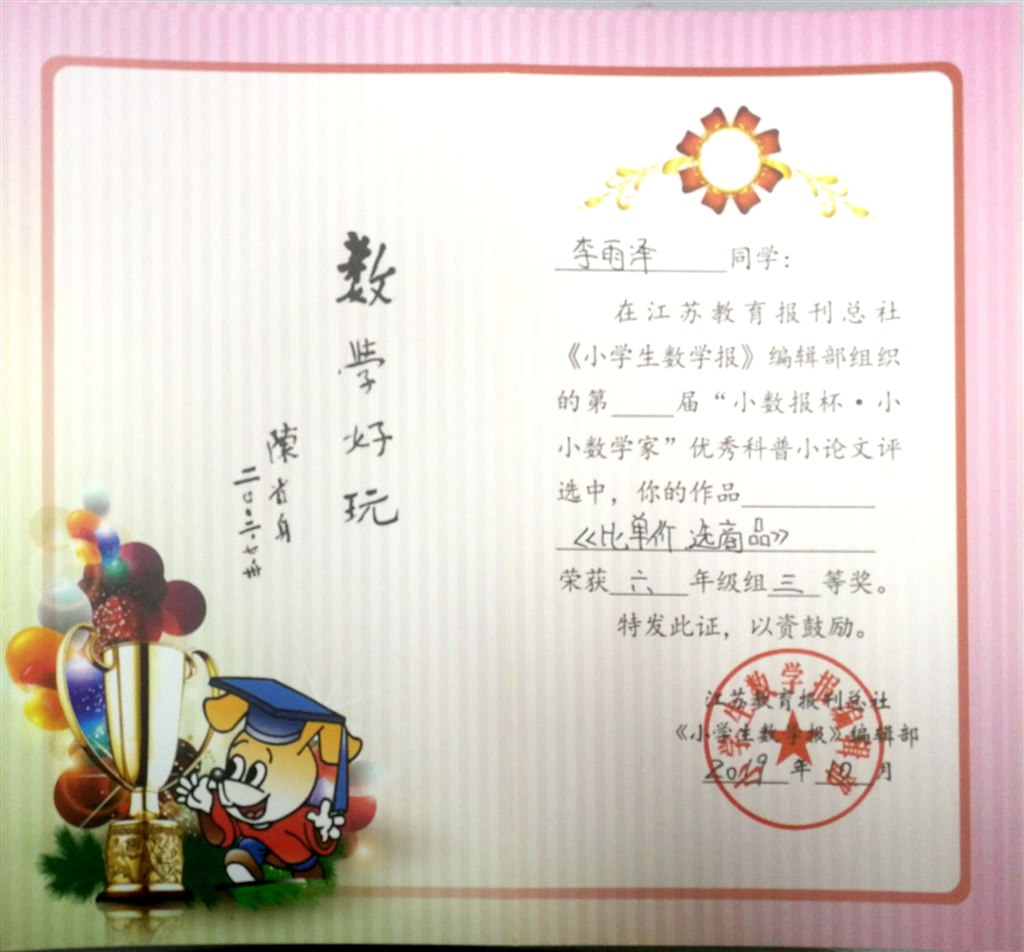 数学好玩
陳省身
二〇〇二·七·卅
李雨泽 同学：
在江苏教育报刊总社
《小学生数学报》编辑部组织
的第____届“小数报杯·小
小数学家”优秀科普小论文评
选中，你的作品
《比单价 选商品》
荣获 六 年级组 三 等奖。
特发此证，以资鼓励。
江苏教育报刊总社
《小学生数学报》编辑部
2019 年 10 月
小学生数学报编辑部